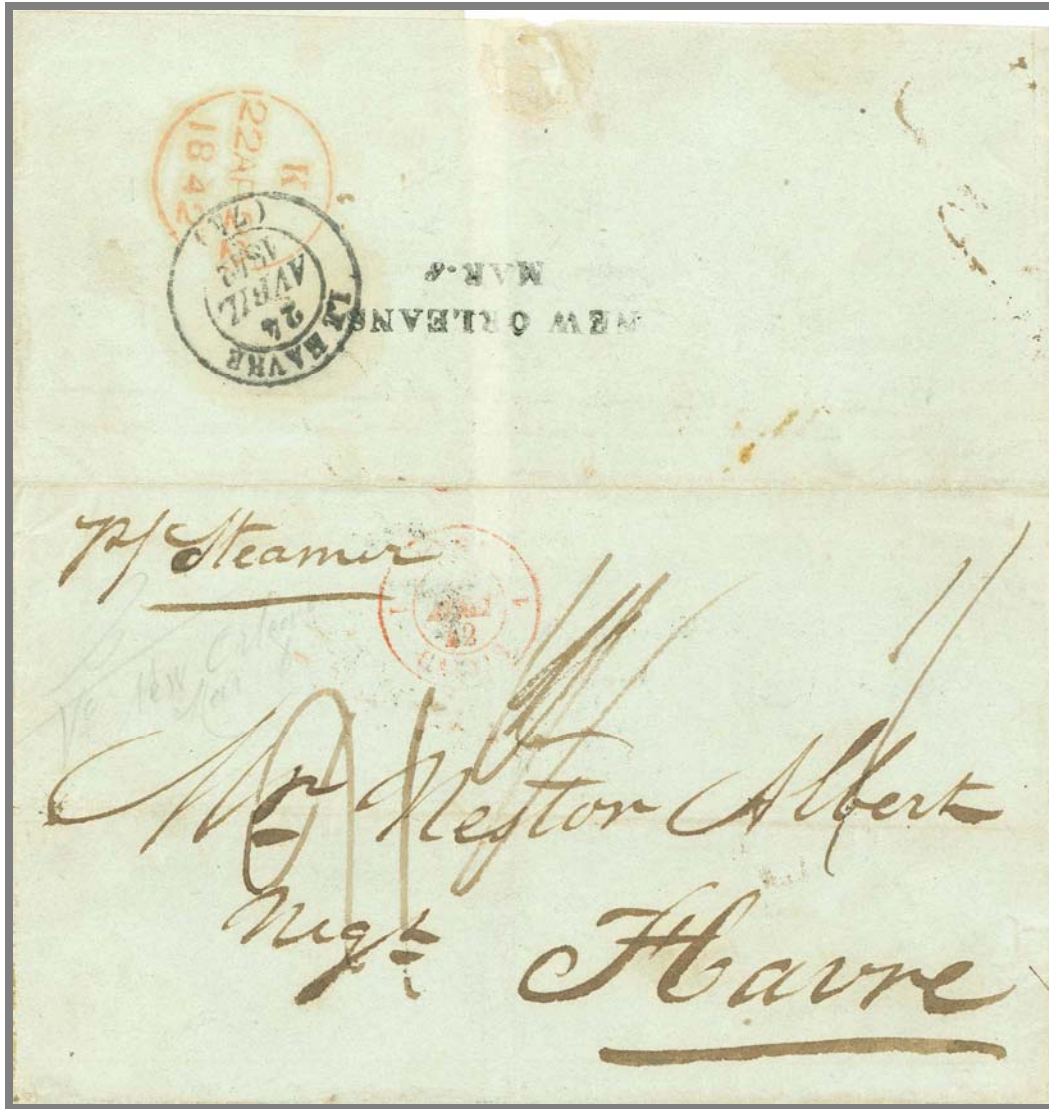 K
22 AP 22
1842
LE HAVRE
24
AVRIL
1842
(74)
NEW ORLEANS
MAR. 8
P/ Steamer
New Orleans
Mar 8
1
1
42
21
Mr Nestor Albert
Negt
Havre